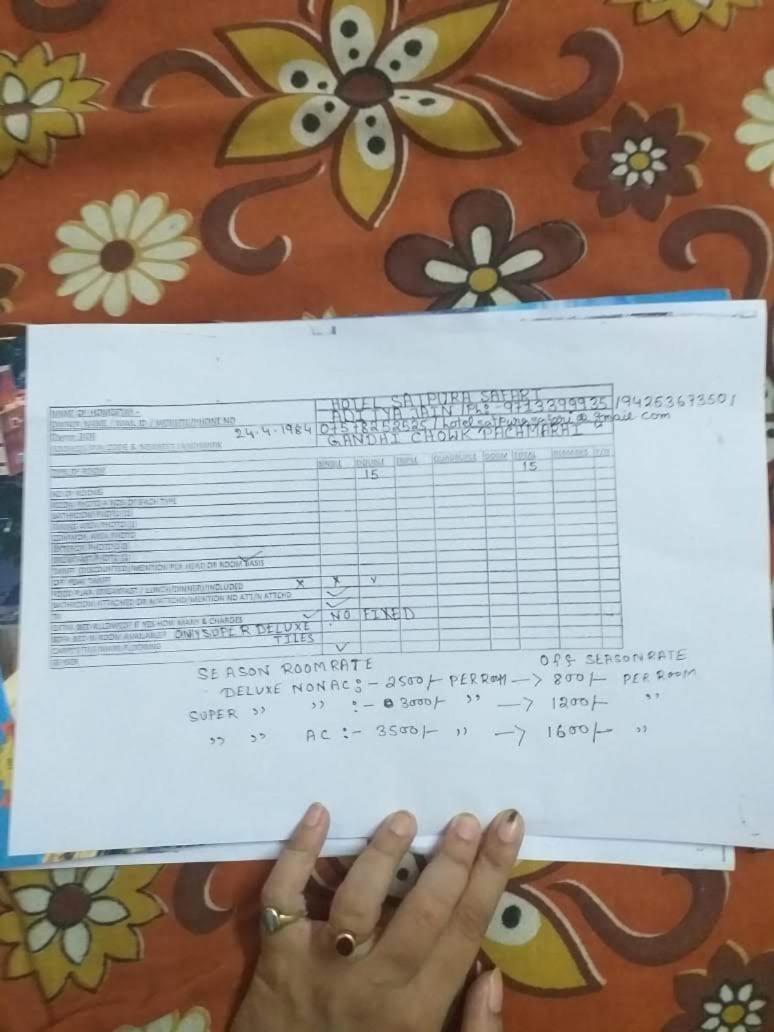 NAME OF HOMESTAY - HOTEL SATPURA SAFARI
OWNER NAME / MAIL ID / WEBSITE/PHONE NO ADITYA JAIN (Ph:-9713399925/9425367350/
24.4.1984 07578252525/hotelsatpurasafari@gmail.com
GANDHI CHOWK PACHMARHI
TYPE OF ROOM SINGLE DOUBLE TRIPLE QUADRUPLE DORM TOTAL REMARKS Y/N
15 15
NO OF ROOMS
TARIFF (DISCOUNTED)/MENTION PER HEAD OR ROOM BASIS
OFF PEAK TARIFF
FOOD PLAN (BREAKFAST / LUNCH/DINNER)/INCLUDED X X
BATHROOM ATTACHED OR N/ATTCHD/MENTION NO ATT/N ATTCHD
TV
EXTRA BED ALLOWED? IF YES HOW MANY & CHARGES NO FIXED
SOFA BED IN ROOM AVAILABLE? ONLY SUPER DELUXE
TILES
GEYSER
SEASON ROOM RATE OFF SEASON RATE
DELUXE NON AC :- 2500/- PER ROOM -> 800/- PER ROOM
SUPER " " :- 3000/- " -> 1200/- "
" " AC :- 3500/- " -> 1600/- "